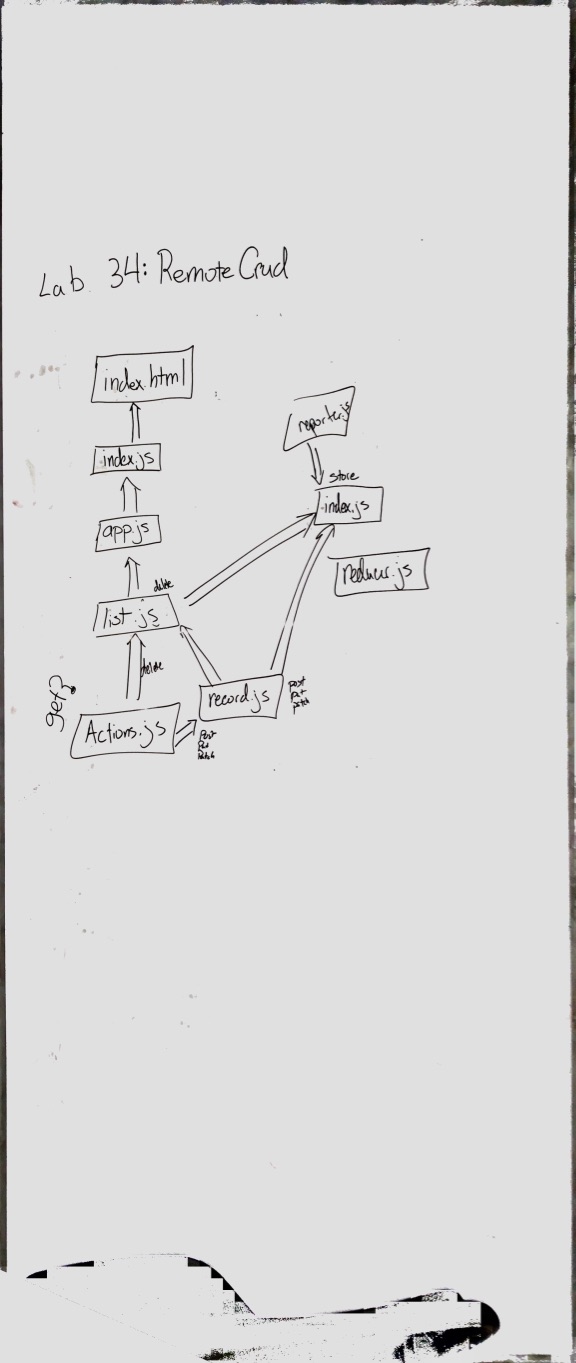 Lab 34: Remote Crud
index.html
index.js
app.js
delete
list.js
delete
get?
Actions.js
Post
Put
Patch
record.js
post
Put
patch
reporter.js
store
index.js